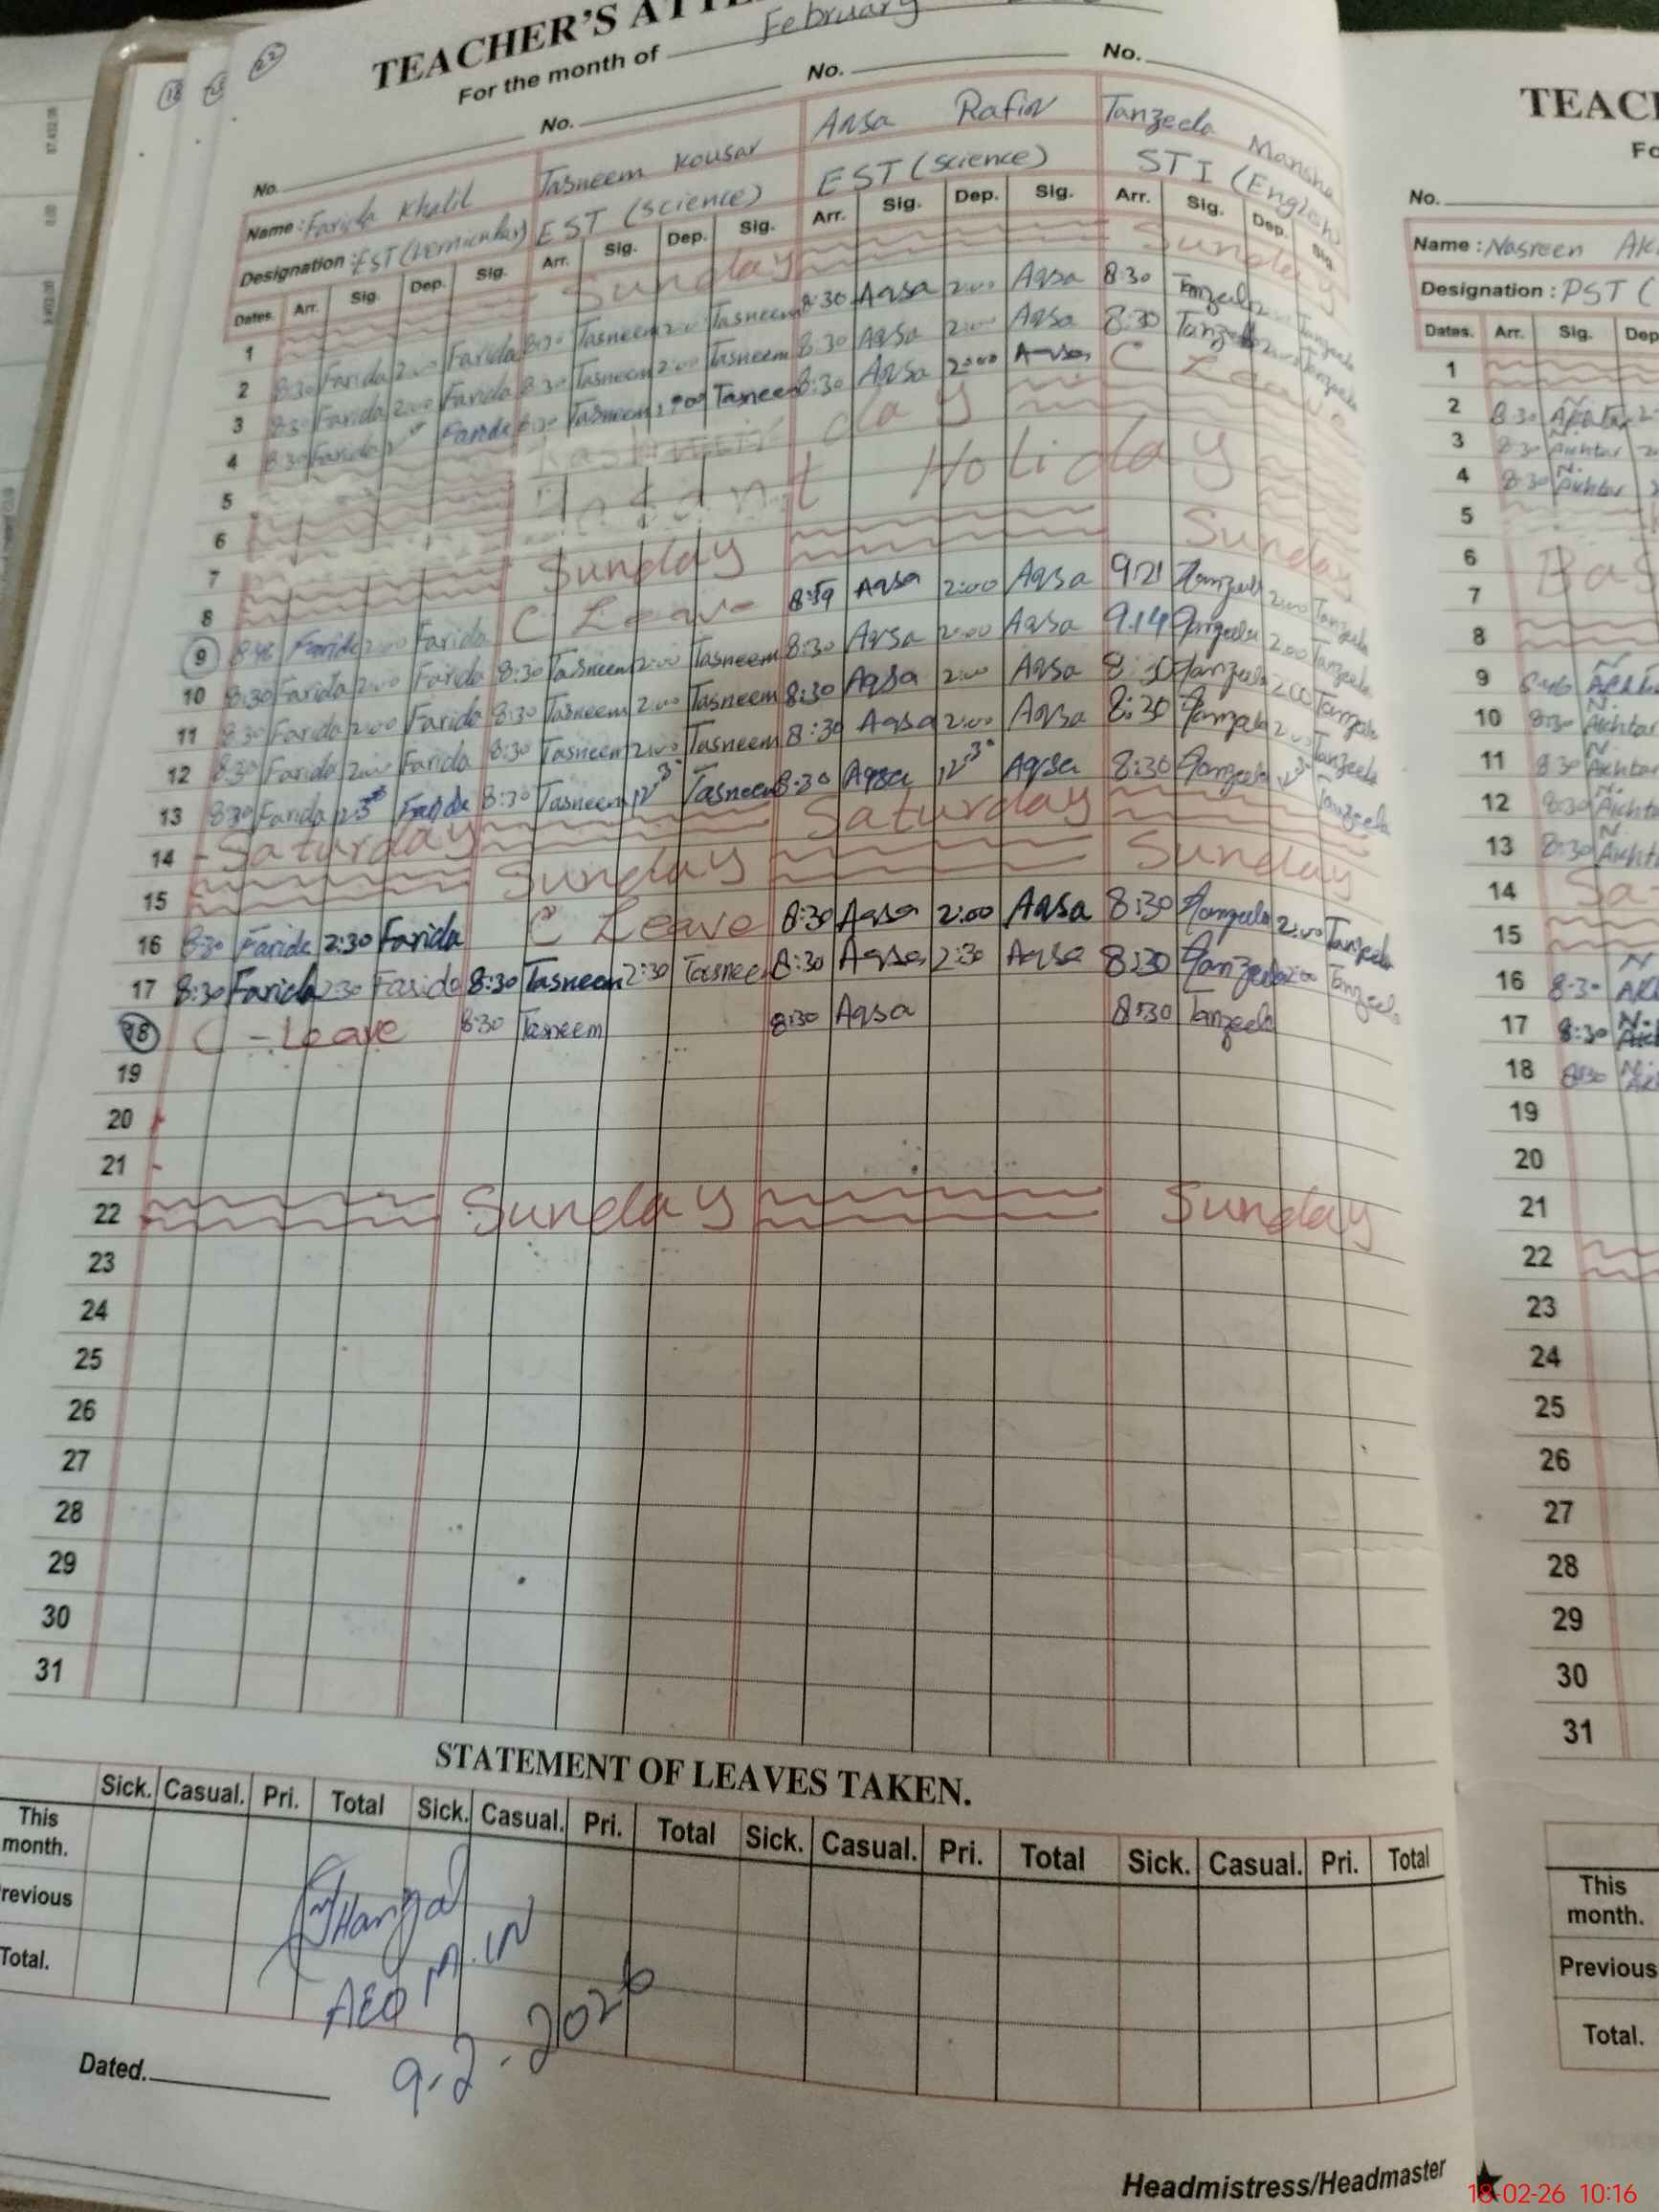 22
TEACHER'S
For the month of February
No. No. No. No.
Name: Farida Khalil Tasneem Kousar Aqsa Tanzeela Mansha
Designation: EST EST (Science) EST (Science) STI (English)
Dates. Arr. Sig. Dep. Sig. Arr. Sig. Dep. Sig. Arr. Sig. Dep. Sig. Arr. Sig. Dep. Sig.
1 Sunday Sunday
2 8:30 Farida 2:00 Farida 8:30 Tasneem 2:00 Tasneem 8:30 Aqsa 2:00 Aqsa 8:30 Tanzeela 2:00 Tanzeela
3 8:30 Farida 2:00 Farida 8:30 Tasneem 2:00 Tasneem 8:30 Aqsa 2:00 Aqsa 8:30 Tanzeela 2:00 Tanzeela
4 8:30 Farida Farida 8:30 Tasneem Tasneem 8:30 Aqsa 2:00 Aqsa C Leave
5 Kashmir day
6 Basant Holiday
7
8 Sunday Sunday
9 Farida 2:00 Farida C Leave Aqsa 2:00 Aqsa 9:21 Tanzeela 2:00 Tanzeela
10 8:30 Farida 2:00 Farida 8:30 Tasneem 2:00 Tasneem 8:30 Aqsa 2:00 Aqsa 9:14 Tanzeela 2:00 Tanzeela
11 8:30 Farida 2:00 Farida 8:30 Tasneem 2:00 Tasneem 8:30 Aqsa 2:00 Aqsa 8:30 Tanzeela 2:00 Tanzeela
12 8:30 Farida 2:00 Farida 8:30 Tasneem 2:00 Tasneem 8:30 Aqsa 2:00 Aqsa Tanzeela 2:00 Tanzeela
13 8:30 Farida Farida 8:30 Tasneem 12 30 Tasneem 8:30 Aqsa 12 30 Aqsa 8:30 Tanzeela 12 30 Tanzeela
14 Saturday Saturday
15 Sunday Sunday
16 8:30 Farida 2:30 Farida C Leave 8:30 Aqsa 2:00 Aqsa 8:30 Tanzeela 2:00 Tanzeela
17 8:30 Farida 2:30 Farida 8:30 Tasneem 2:30 Tasneem 8:30 Aqsa 2:30 Aqsa 8:30 Tanzeela 2:00 Tanzeela
18 C - Leave 8:30 Tasneem 8:30 Aqsa 8:30 Tanzeela
19
20
21
22 Sunday Sunday
23
24
25
26
27
28
29
30
31
STATEMENT OF LEAVES TAKEN.
Sick. Casual. Pri. Total Sick. Casual. Pri. Total Sick. Casual. Pri. Total Sick. Casual. Pri. Total
This month.
revious
Total.
AEO
9-2-2026
Dated.
Headmistress/Headmaster
TEAC
No.
Name: Nasreen
Designation: PST (
Dates. Arr. Sig. Dep
1
2 8:30
3 8:30 N. Akhtar
4 8:30 N. Akhtar
5
6 Bas
7
8
9
10 8:30 N. Akhtar
11 8:30 N. Akhtar
12 8:30 N. Akhta
13 8:30 N. Akht
14 Sa
15
16 8:30 N
17 8:30 N.
18 8:30 N.
19
20
21
22
23
24
25
26
27
28
29
30
31
This month.
Previous
Total.
18-02-26 10:16